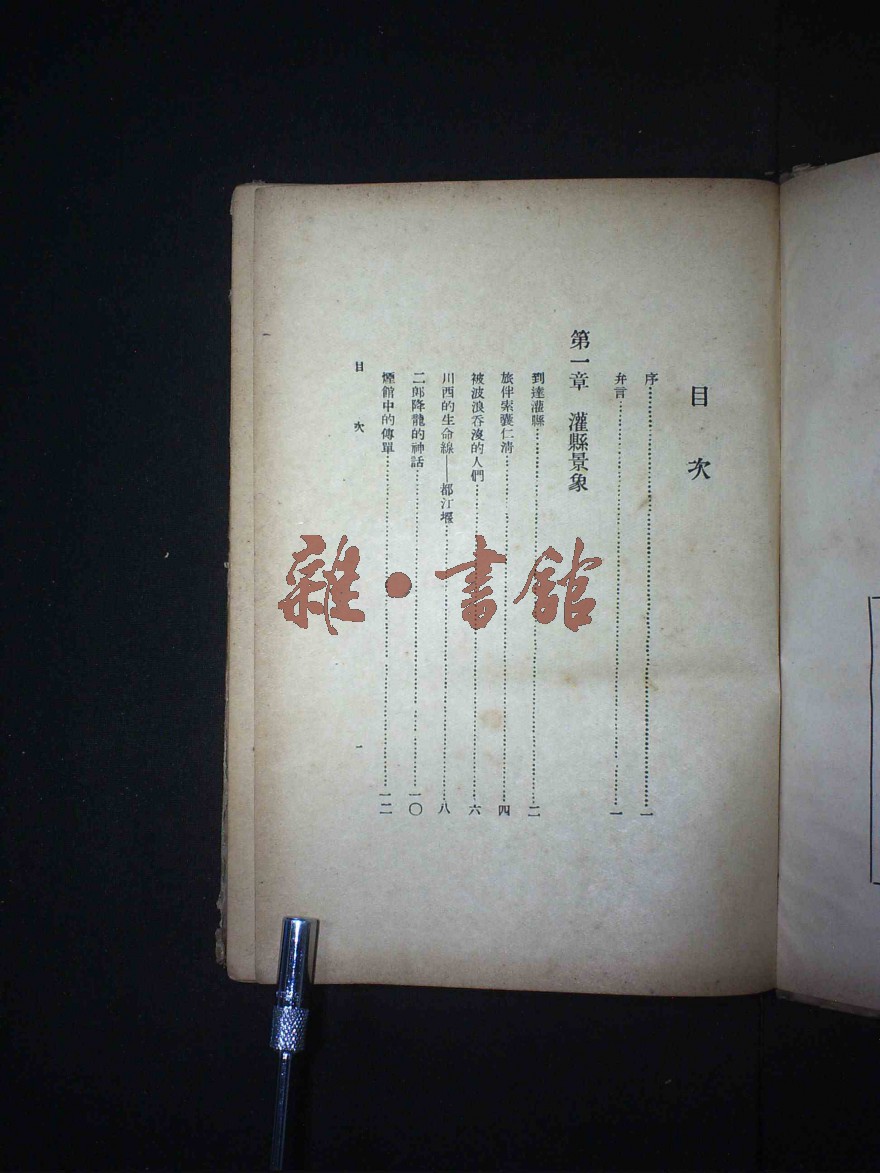 目次
序……一
弁言……一
第一章 灌縣景象
到達灌縣……二
旅伴索囊仁清……四
被波浪吞沒的人們……六
川西的生命線——都江堰……八
二郎降龍的神話……一〇
煙館中的傳單……一二
目次 一
雜·書館